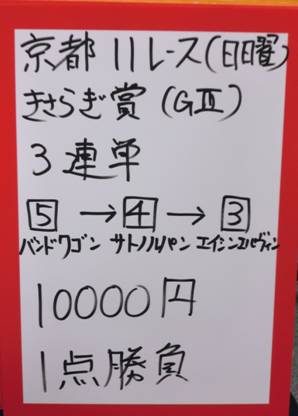 京都11レース(日曜)
きさらぎ賞(GⅢ)
3連単
5→4→3
バンドワゴン サトノルパン エイシンエルヴィン
10000円
1点勝負